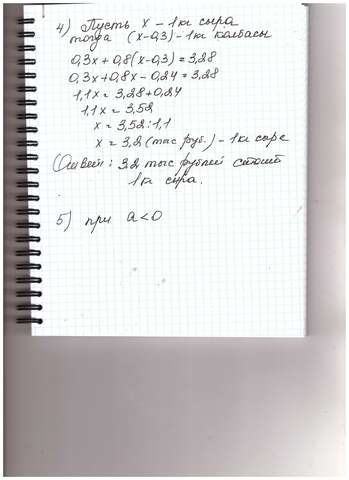 4) Пусть x - 1 кг сыра
тогда (x-0,3) - 1 кг колбасы
0,3x + 0,8(x-0,3) = 3,28
0,3x + 0,8x - 0,24 = 3,28
1,1x = 3,28 + 0,24
1,1x = 3,52
x = 3,52 : 1,1
x = 3,2 (тыс руб.) - 1 кг сыра
Ответ: 3,2 тыс рублей стоит
1 кг сыра.
5) при a < 0